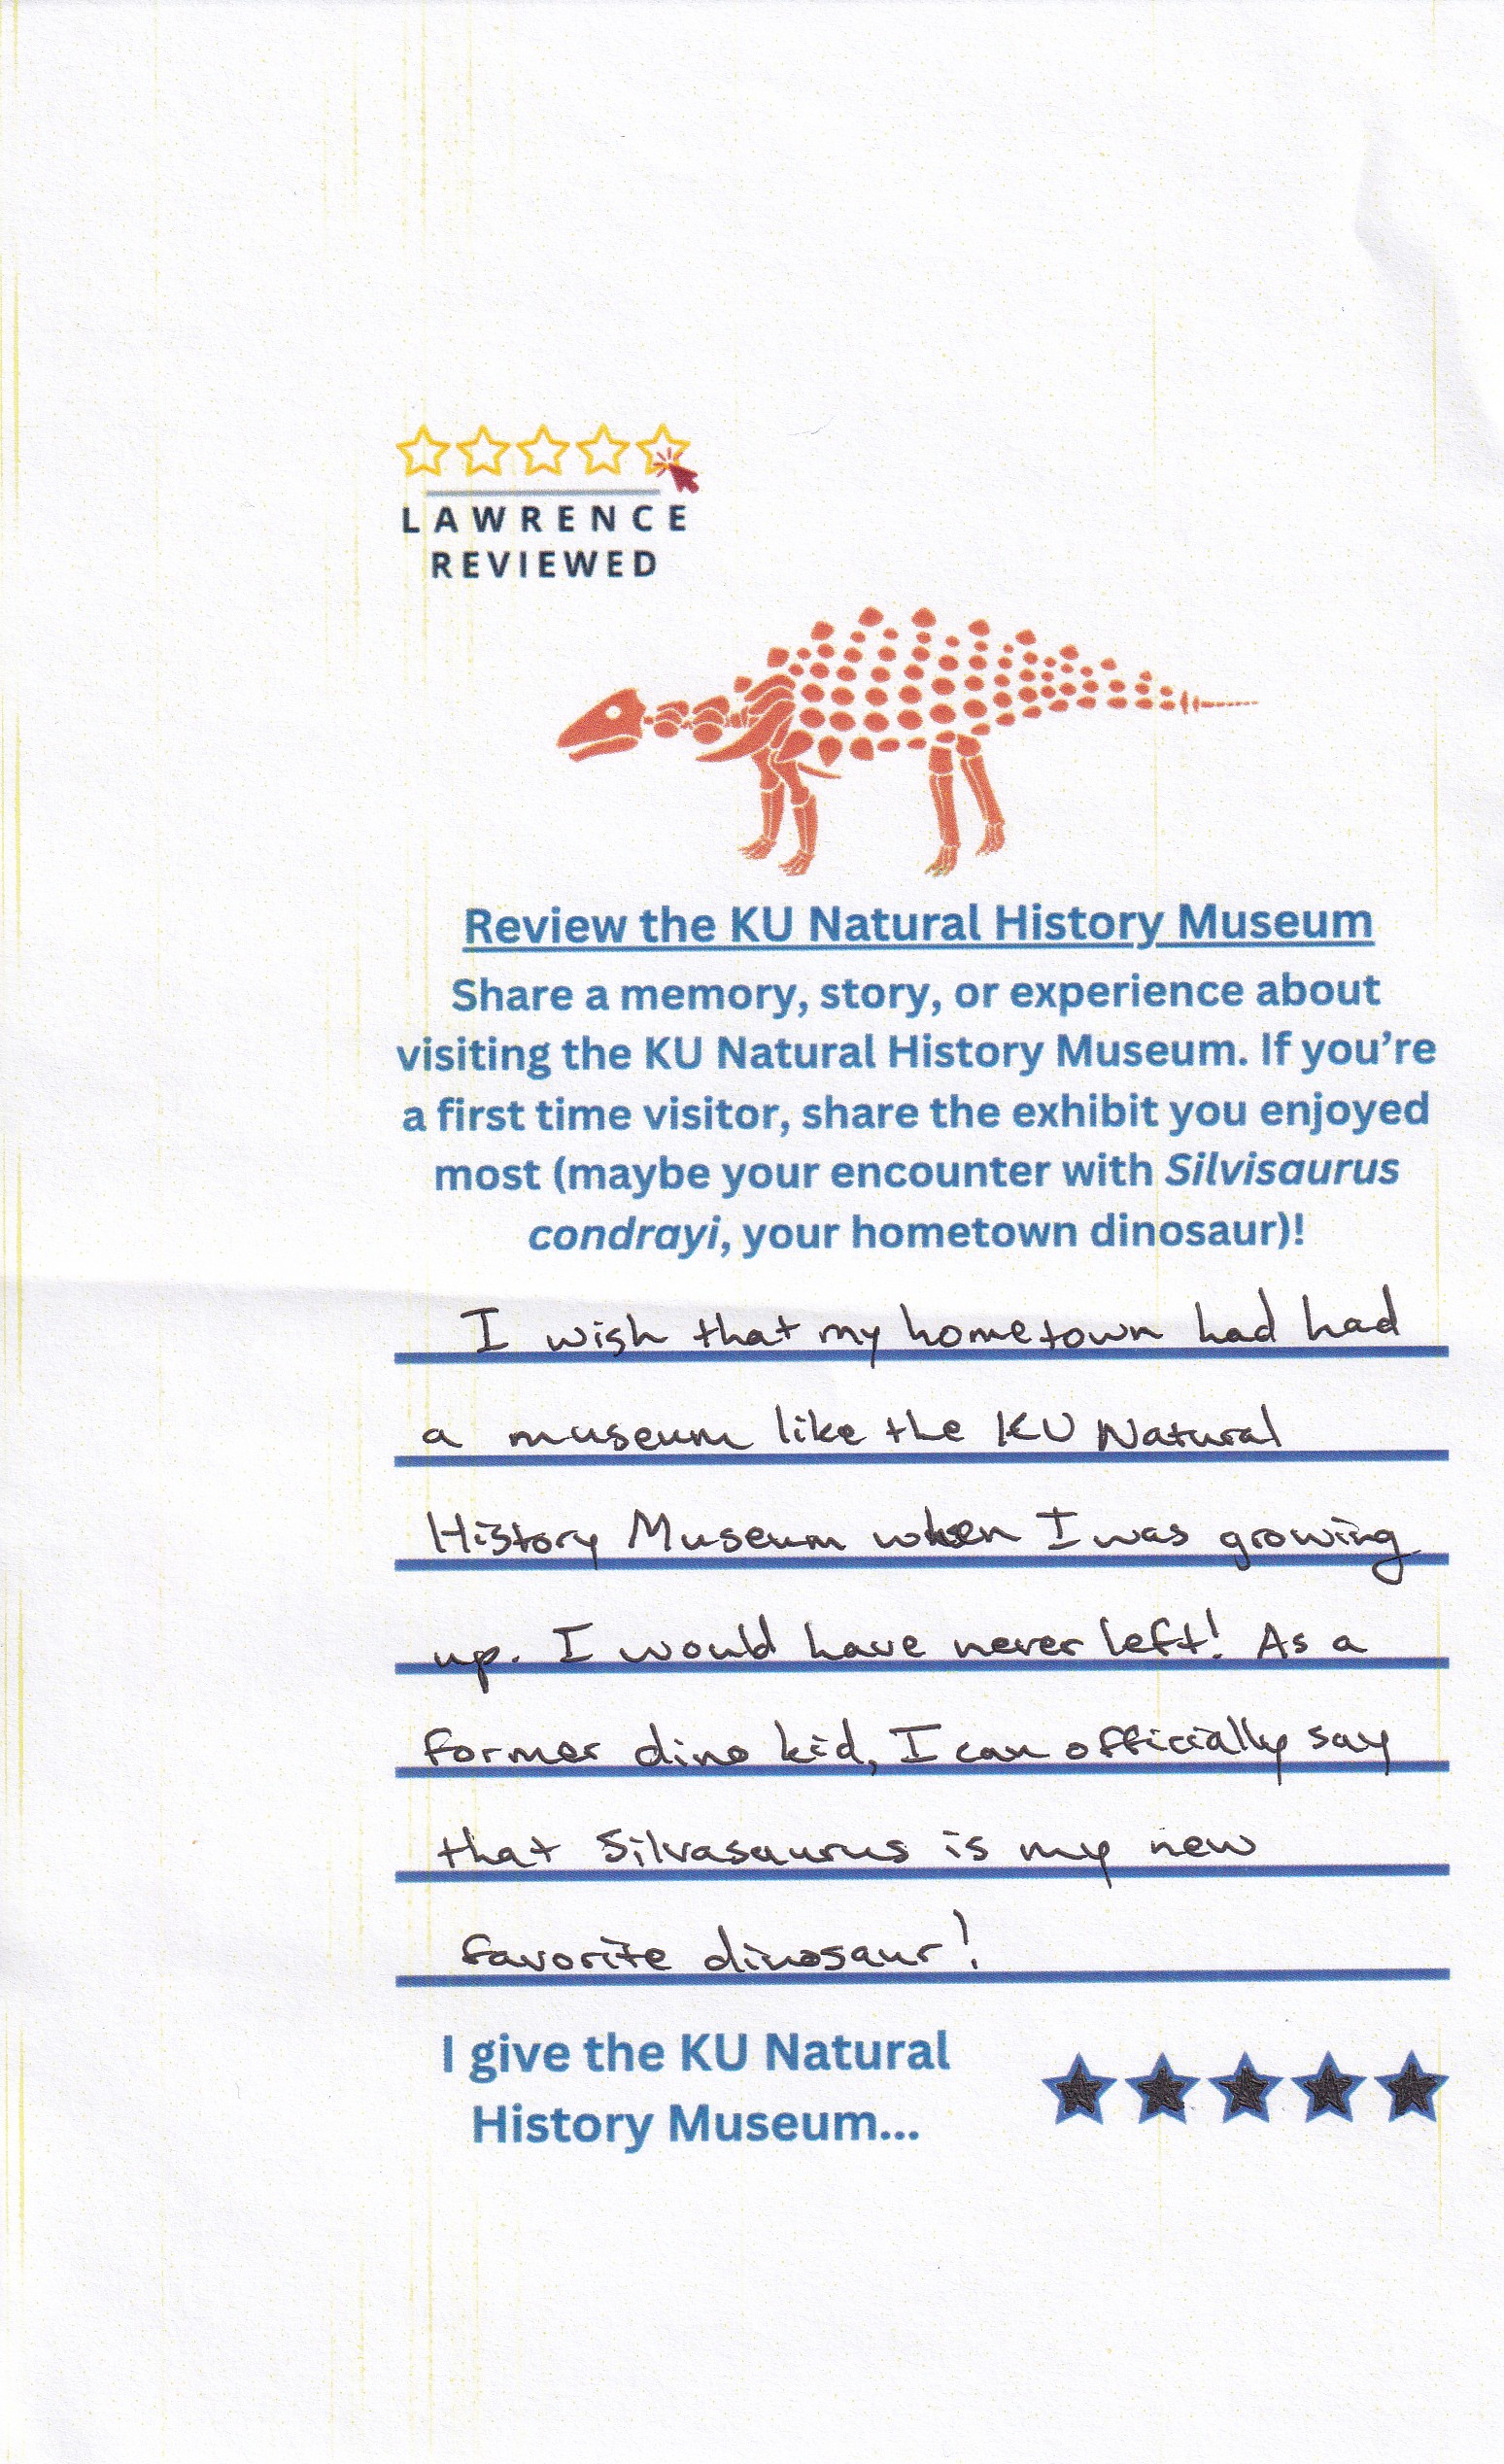 LAWRENCE
REVIEWED
Review the KU Natural History Museum
Share a memory, story, or experience about
visiting the KU Natural History Museum. If you're
a first time visitor, share the exhibit you enjoyed
most (maybe your encounter with Silvisaurus
condrayi, your hometown dinosaur)!
I wish that my hometown had had
a museum like the KU Natural
History Museum when I was growing
up. I would have never left! As a
former dino kid, I can officially say
that Silvasaurus is my new
favorite dinosaur!
I give the KU Natural
History Museum...